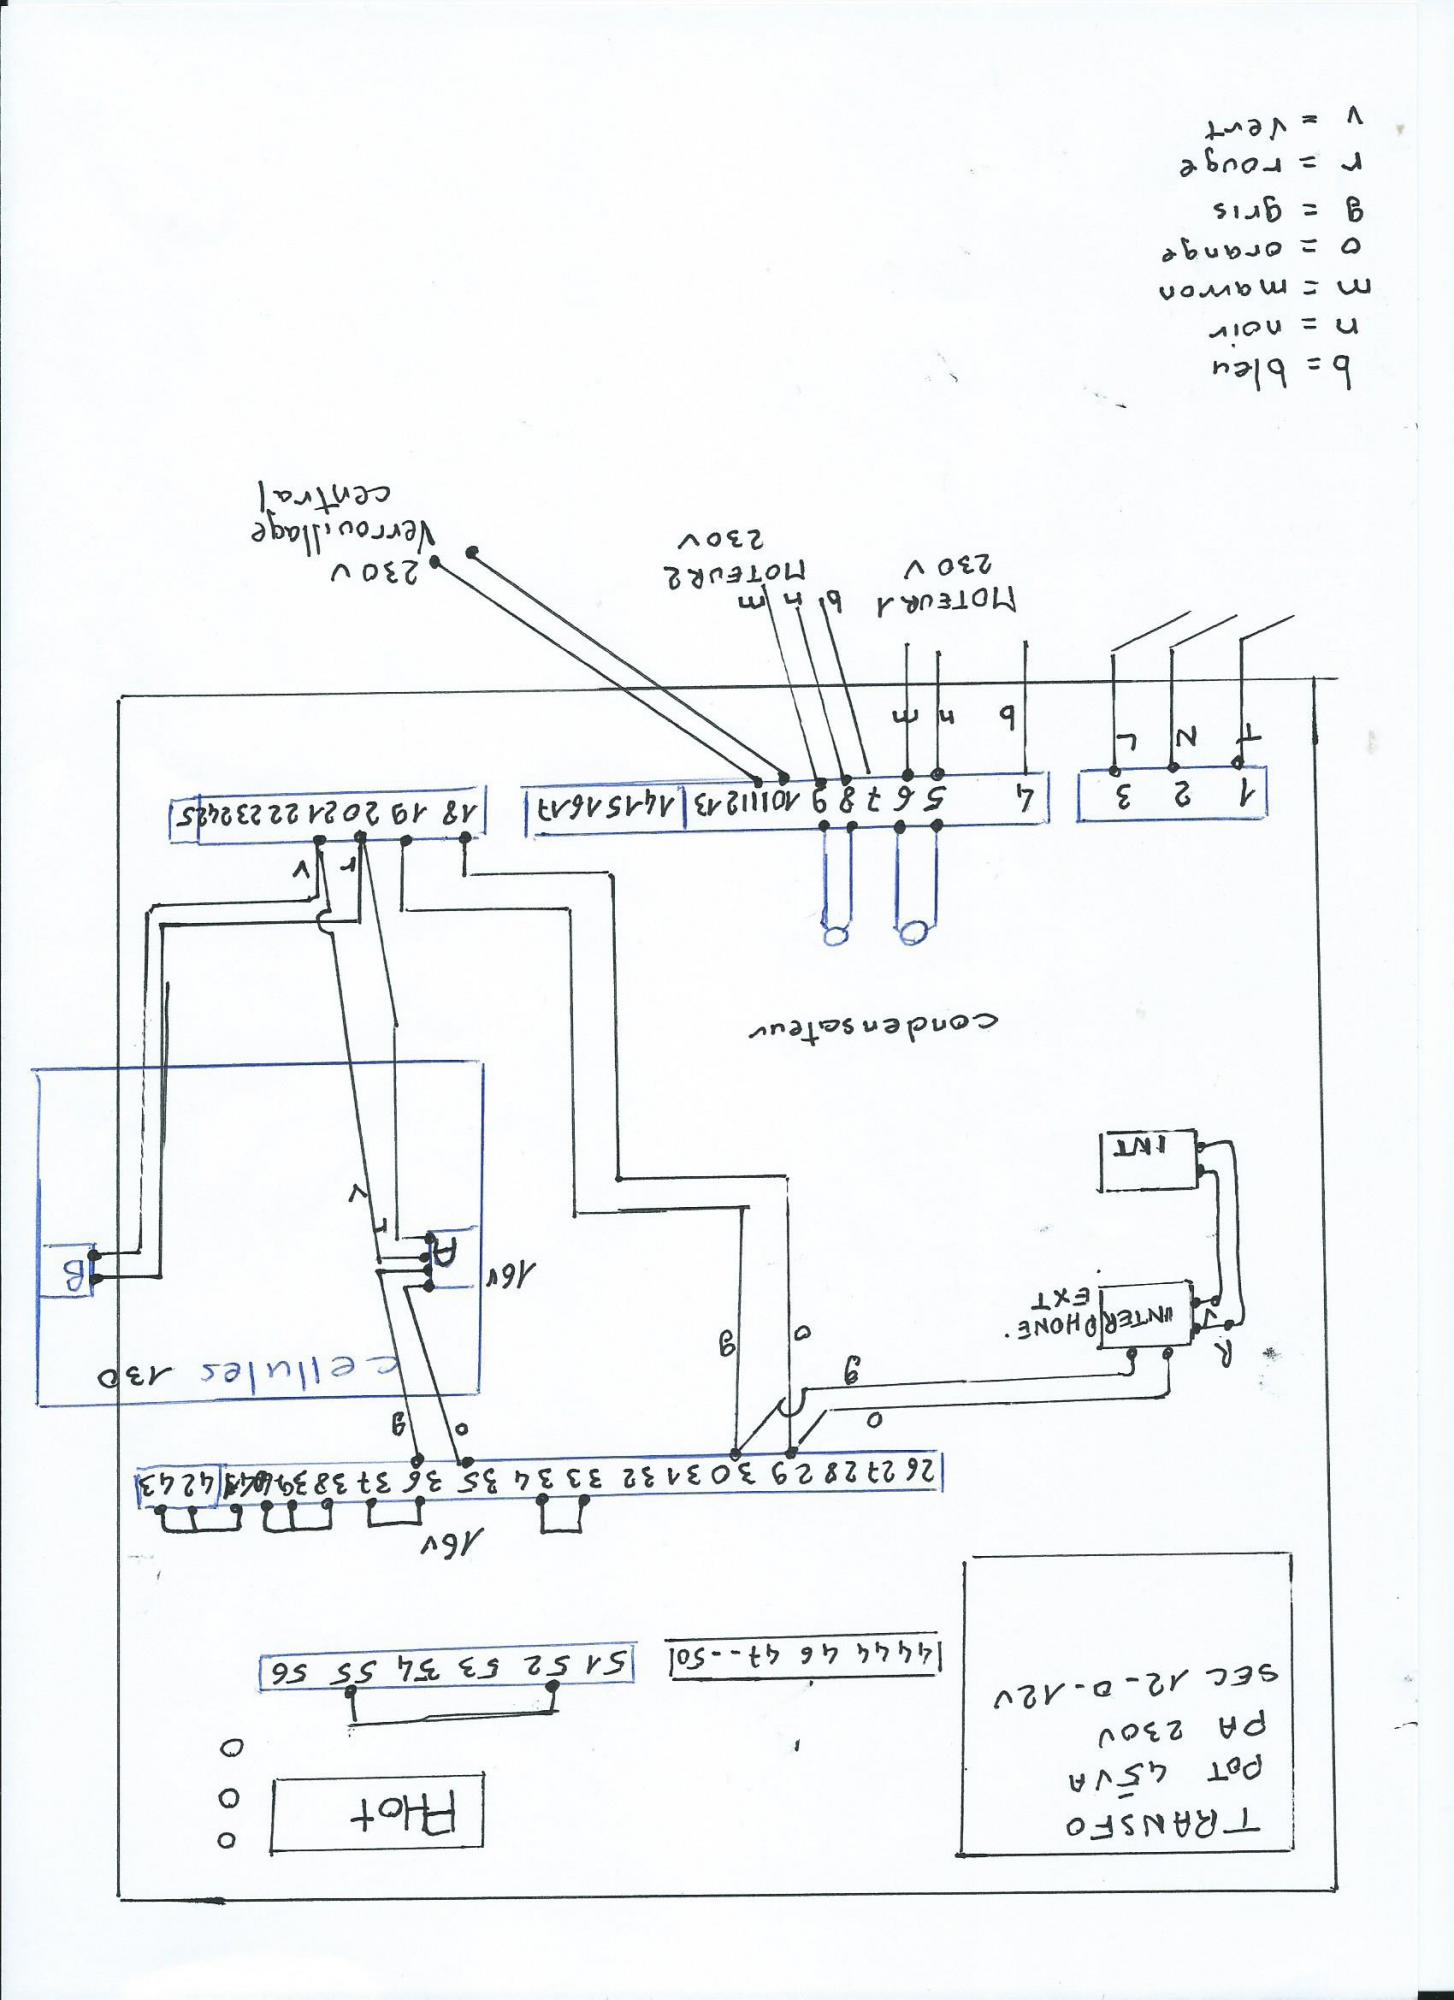 TRANSFO
POT 45VA
PA 230V
SEC 12-0-12V
PHOT
444446 47--50
51 52 53 54 55 56
16v
26 27 28 29 30 31 32 33 34 35 36 37 38 39 40 41 42 43
o
g
o
g
cellules 130
R
V
INTERPHONE
EXT
g
o
16v
A
B
r
v
INT
condensateur
r
v
1 2 3
4 5 6 7 8 9 10 11 12 13 14 15 16 17
18 19 20 21 22 23 24 25
T
N
L
b
n
m
MOTEUR 1
230 V
b
n
m
MOTEUR 2
230V
230V
Verrouillage
central
b = bleu
n = noir
m = marron
o = orange
g = gris
r = rouge
v = vert